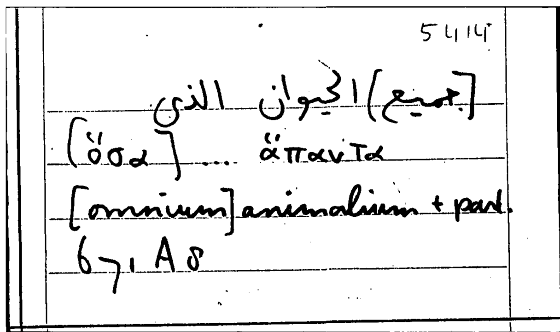 5414
[جميع] الحيوان الذى
[ὅσα] .... ἅπαντα
[omnium] animalium + part.
671 A 8